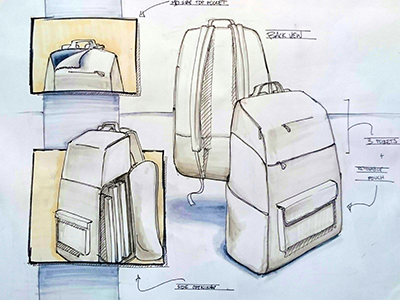 TOP POCKET
BACK VIEW
3 POCKETS
+
POUCH
SIDE OPENING